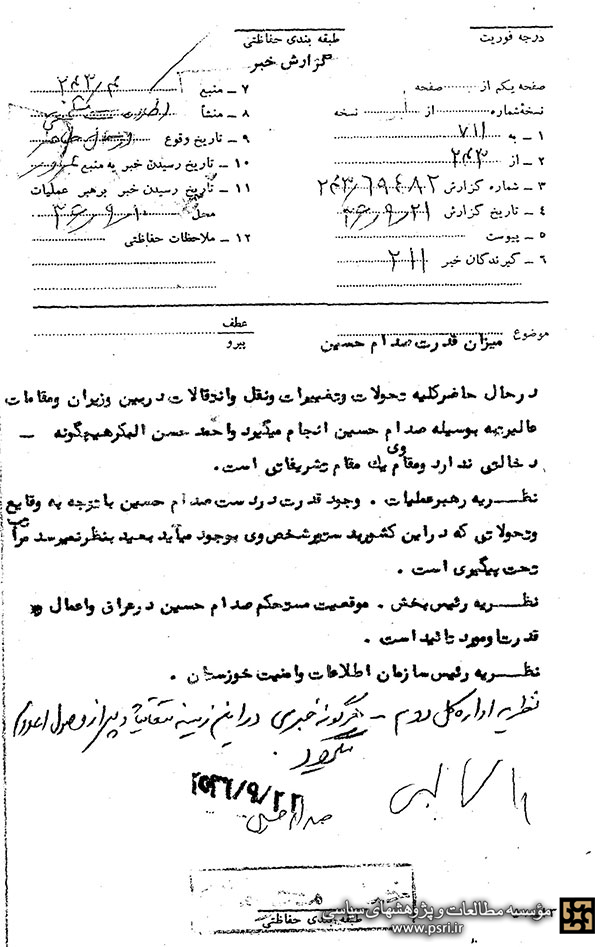 درجه فوریت
طبقه بندی حفاظتی
گزارش خبر
صفحه یکم از صفحه
نسخه شماره از نسخه
۱ ـ به ۷۱۱
۲ ـ از ۲۴۳
۳ ـ شماره گزارش ۲۴۳۶۹۴۸۲
۴ ـ تاریخ گزارش ۳۶/۹/۲۱
۵ ـ پیوست
۶ ـ گیرندگان خبر ۲۱۱
۷ ـ منبع
۸ ـ منشأ
۹ ـ تاریخ وقوع
۱۰ ـ تاریخ رسیدن خبر به منبع
۱۱ ـ تاریخ رسیدن خبر برهبر عملیات
محل ۳۶/۹/۱۰
۱۲ ـ ملاحظات حفاظتی
عطف
پیرو
موضوع میزان قدرت صدام حسین
در حال حاضر کلیه تحولات و تغییرات و نقل و انتقالات در بین وزیران و مقامات
عالیرتبه بوسیله صدام حسین انجام میگیرد و احمد حسن البکر هیچگونه ـ
دخالتی ندارد و مقام وی یک مقام تشریفاتی است.
نظریه رهبر عملیات . وجود قدرت در دست صدام حسین با توجه به وقایع
و تحولاتی که در این کشور بدستور شخص وی بوجود میآید بعید بنظر نمیرسد مراتب
تحت پیگیری است .
نظریه رئیس بخش . موقعیت مستحکم صدام حسین در عراق و اعمال
قدرت او مورد تائید است .
نظریه رئیس سازمان اطلاعات و امنیت خوزستان .
نظریه اداره کل دوم ـ هرگونه خبری در این زمینه متعاقباً و پس از وصول اعلام
میگردد .
۲۵۳۶/۹/۲۲
صدام حسین
طبقه بندی حفاظتی
مؤسسه مطالعات و پژوهشهای سیاسی
www.psri.ir